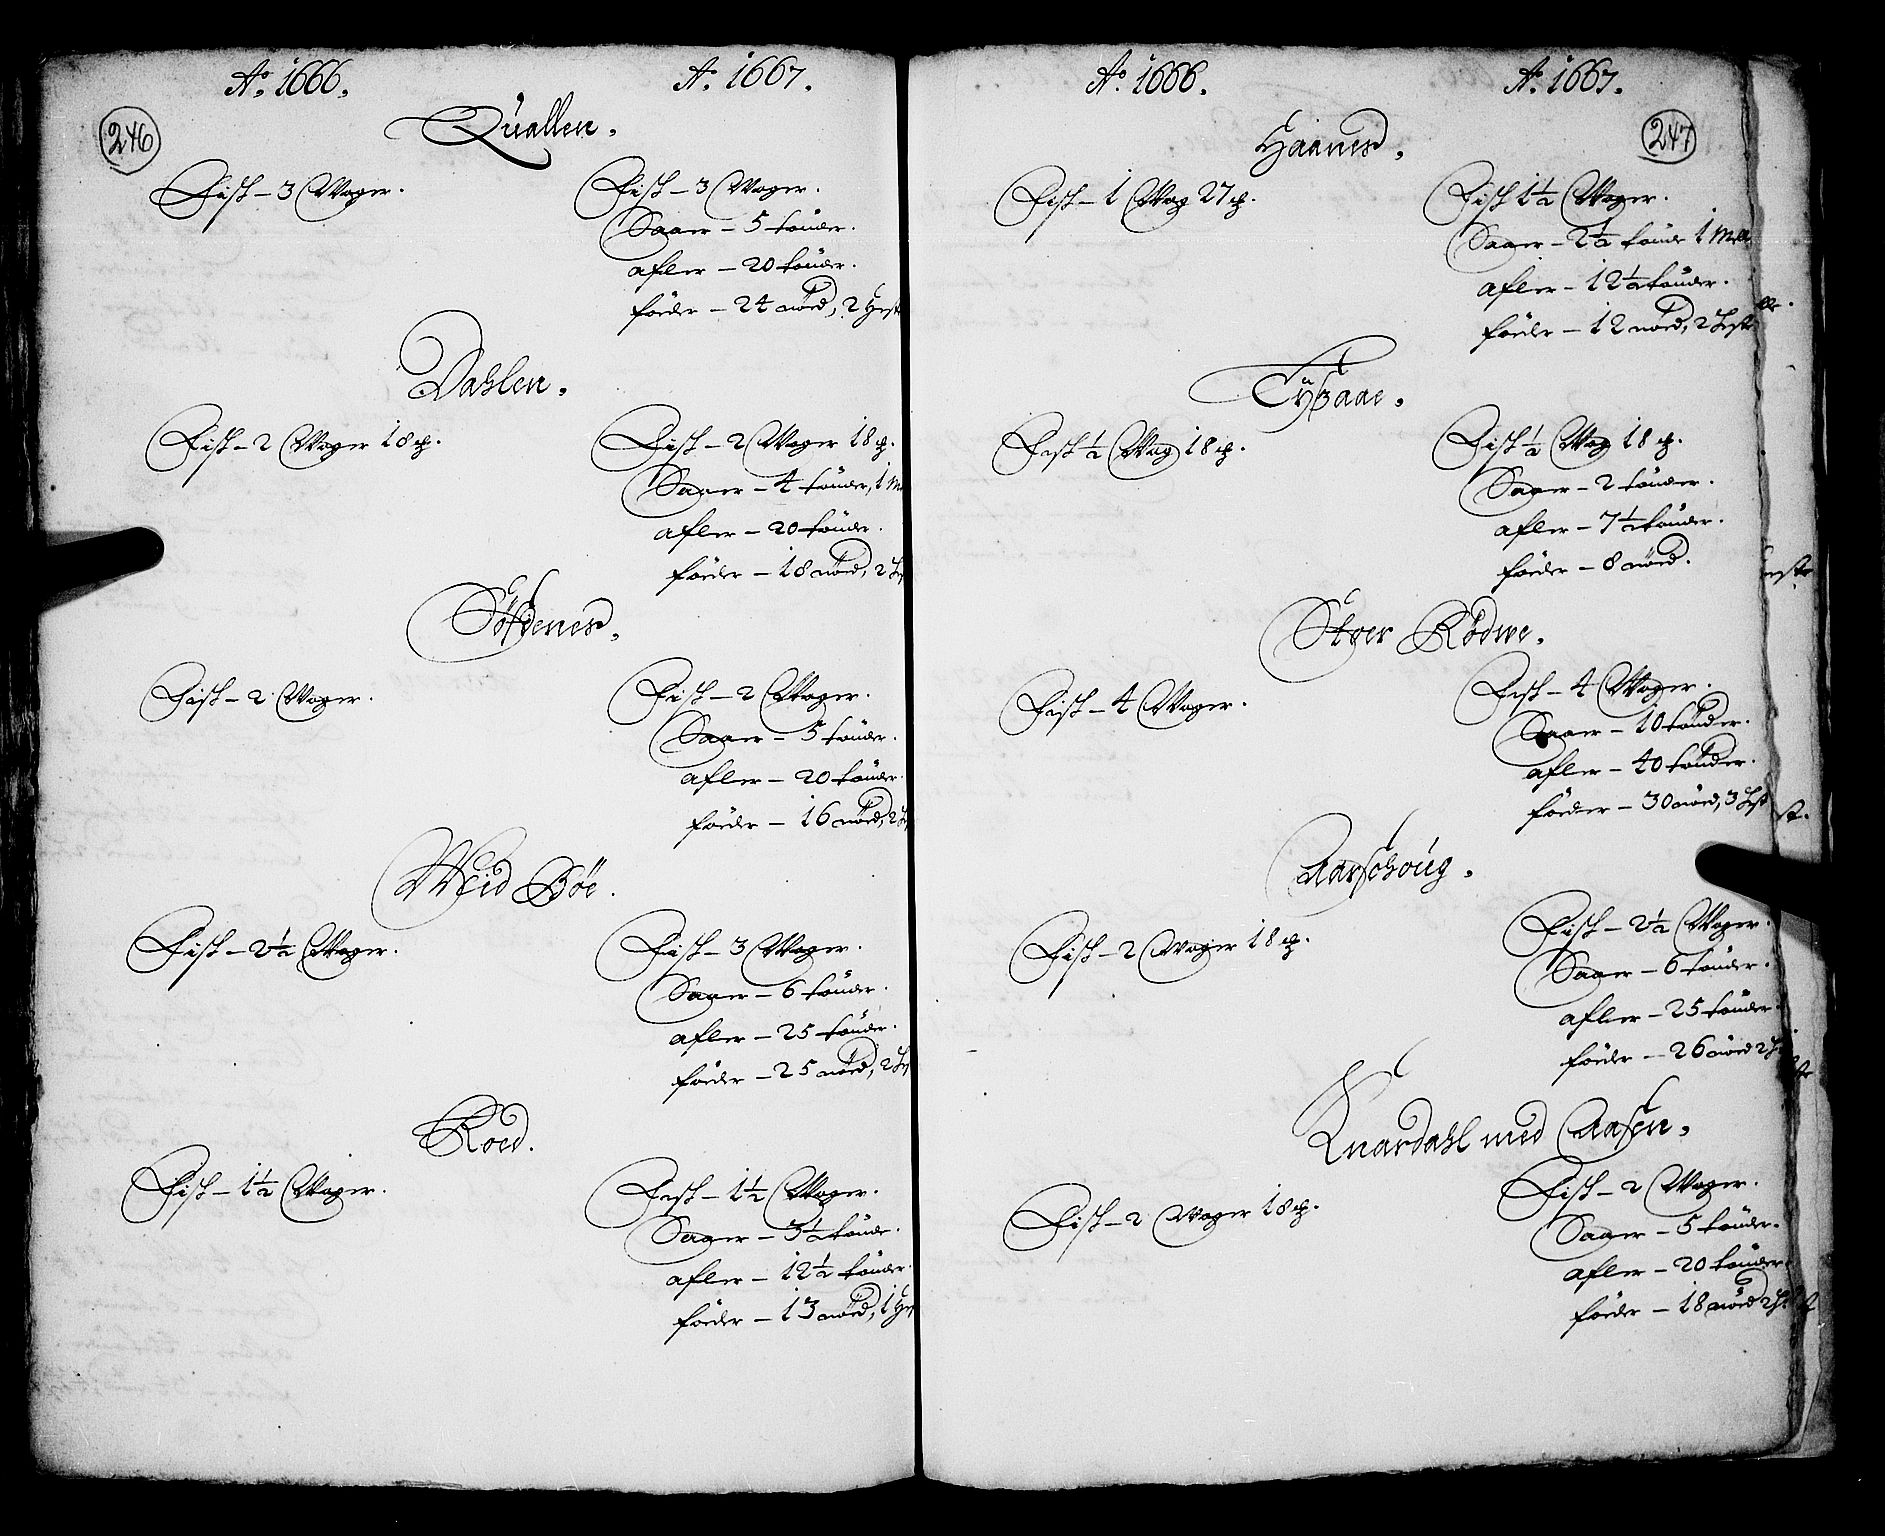 246
Ao. 1666. Ao. 1667.
Quallen.
Fisk – 3 Woger. Fisk – 3 Woger.
Saaer – 5 tønder.
afler – 20 tønder.
føeder – 24 nød, 2 Hest
Dahlen.
Fisk – 2 Woger 18 ℔. Fisk – 2 Woger 18 ℔.
Saaer – 4 tønder, 1 M
afler – 20 tønder.
føeder – 18 nød, 2 Hes
Fisk – 2 Woger. Fisk – 2 Woger.
Saaer – 5 tønder.
afler – 20 tønder.
føeder – 16 nød, 2 He
Weid Bøe.
Fisk – 2½ Woger. Fisk – 3 Woger.
Saaer – 6 tønder.
afler – 25 tønder.
føeder – 25 nød, 2 Hes
Roed.
Fisk – 1½ Woger. Fisk – 1½ Woger.
Saaer – 3½ tønde.
afler – 12½ tønder.
føeder – 13 nød, 1 Hes
247
Ao. 1666. Ao. 1667.
Haanes.
Fisk – 1 Wog 27 ℔. Fisk 1½ Woger.
Saaer – 2½ tønde 1 Mell
afler – 12½ tønder.
føeder – 12 nød, 2 Heste
Tÿsaae.
Fisk ½ Wog 18 ℔. Fisk ½ Wog 18 ℔.
Saaer – 2 tønder.
afler – 7½ tønder.
føeder – 8 nød.
Stoer Rødwe.
Fisk – 4 Woger. Fisk – 4 Woger.
Saaer – 10 tønder.
afler – 40 tønder.
føeder – 30 nød, 3 Hest
Aarschoug.
Fisk – 2 Woger 18 ℔. Fisk – 2½ Woger.
Saaer – 6 tønder.
afler – 25 tønder.
føeder – 26 nød 2 He
Knardahl med Aasen.
Fisk – 2 Woger 18 ℔. Fisk – 2 Woger.
Saaer – 5 tønder.
afler – 20 tønder.
føeder – 18 nød 2 He